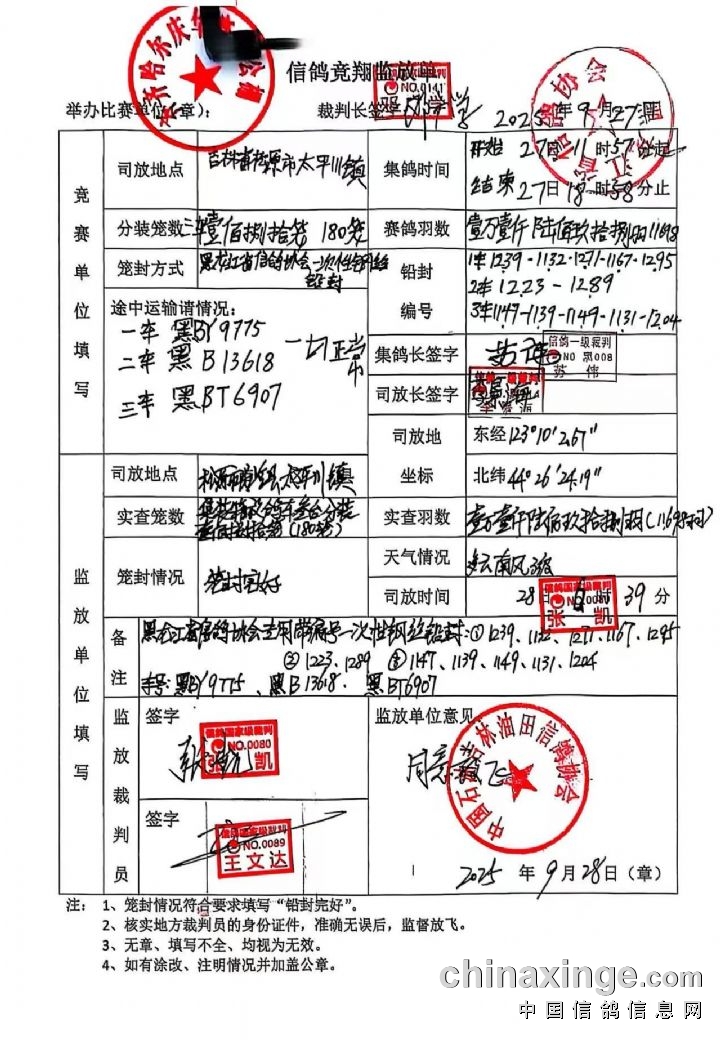 信鸽竞翔监放单
举办比赛单位(章): 裁判长签字 2025年9月27日
竞赛单位填写
司放地点 吉林省松原市太平川镇 集鸽时间 开始27日11时57分起
结束27日18时58分止
分装笼数 三车壹佰捌拾笼 180笼 赛鸽羽数 壹万壹仟陆佰玖拾捌羽11698
笼封方式 黑龙江省信鸽协会一次性钢丝铅封 铅封编号 1车1239-1132-1271-1167-1295
2车1223-1289
3车1147-1139-1149-1131-1204
途中运输请情况:
一车 黑BY9775 一切正常
二车 黑B13618
三车 黑BT6907
集鸽长签字 信鸽一级裁判 NO 黑008 苏伟
司放长签字 信鸽一级裁判
司放地坐标 东经123°10′2.67″
北纬44°26′24.19″
监放单位填写
司放地点 太平川镇
实查笼数 (180笼) 实查羽数 壹万壹仟陆佰玖拾捌羽(11698羽)
笼封情况 笼封完好 天气情况
司放时间 28日6时39分
备注 黑龙江省信鸽协会专用带编号一次性钢丝铅封:①1239、1132、1271、1167、1295
②1223、1289 ③1147、1139、1149、1131、1204
车号:黑BY9775、黑B13618、黑BT6907
监放裁判员
签字 信鸽国家级裁判 NO.0080 张凯
签字 信鸽国家级裁判 NO.0089 王文达
监放单位意见
同意放飞
中国石油吉林油田信鸽协会
2025年9月28日(章)
注: 1、笼封情况符合要求填写“铅封完好”。
2、核实地方裁判员的身份证件,准确无误后,监督放飞。
3、无章、填写不全、均视为无效。
4、如有涂改、注明情况并加盖公章。
chinaxinge.com
中国信鸽信息网